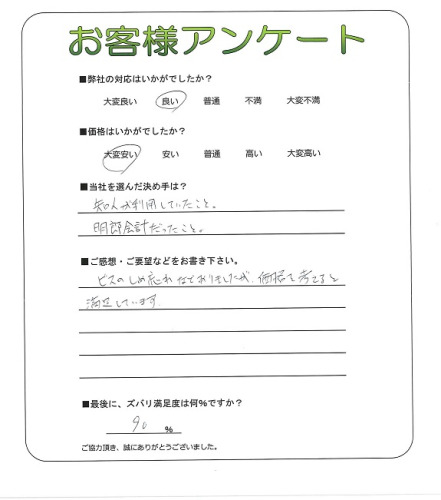 お客様アンケート
■弊社の対応はいかがでしたか？
大変良い 良い 普通 不満 大変不満
■価格はいかがでしたか？
大変安い 安い 普通 高い 大変高い
■当社を選んだ決め手は？
知人が利用していたこと。
明郎会計だったこと。
■ご感想・ご要望などをお書き下さい。
ビスのしめ忘れなどありましたが、価格で考えると
満足しています.
■最後に、ズバリ満足度は何%ですか？
90 %
ご協力頂き、誠にありがとうございました。